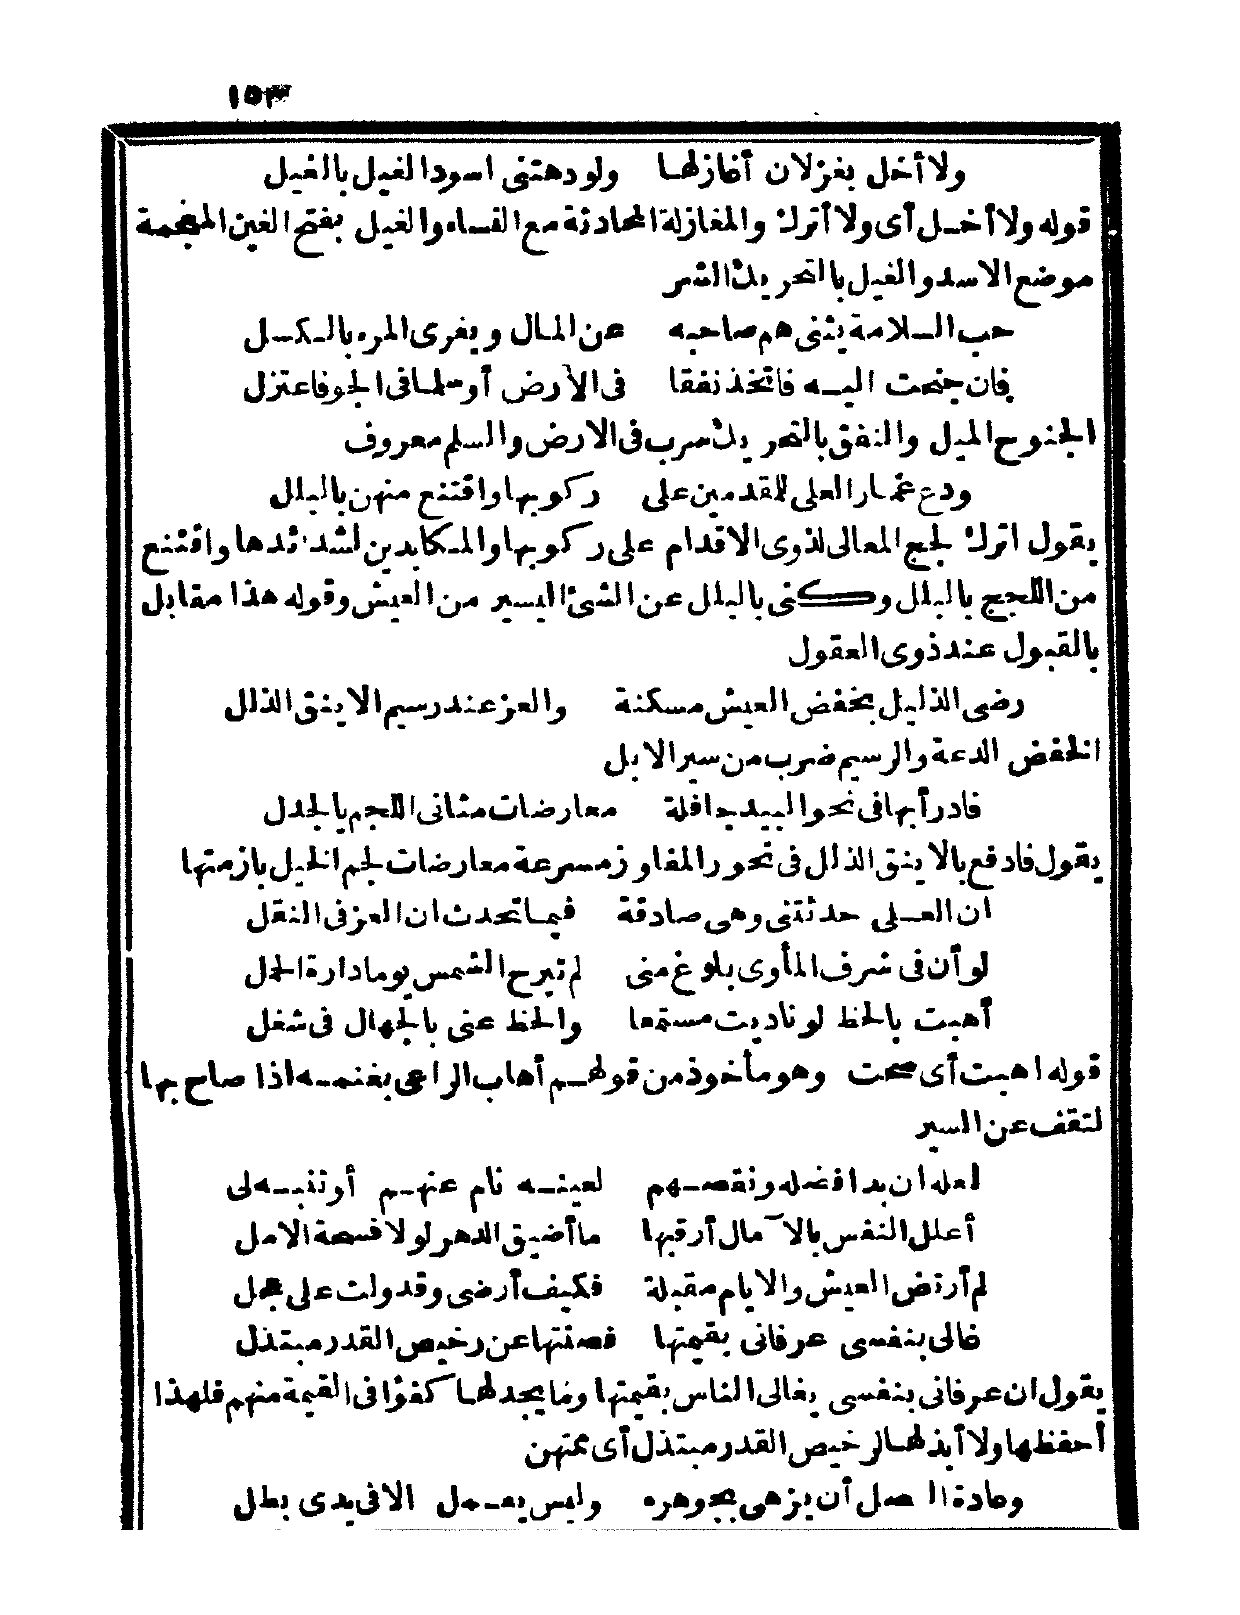 ١٥٣
ولا أخل بغزلان أغازلها ولو دهتنى اسود الغيل بالغيل
قوله ولا أخل أى ولا أترك والمغازلة المحادثة مع النساء والغيل بفتح الغين المعجمة
موضع الاسد والغيل بالتحريك الشر
حب السلامة يثنى هم صاحبه عن المال ويغرى المرء بالكسل
فان جنحت اليه فاتخذ نفقا فى الأرض أو سلما فى الجو فاعتزل
الجنوح الميل والنفق بالتحريك سرب فى الارض والسلم معروف
ودع غمار العلى للقدمين على ركوبها واقتنع منهن بالبلل
يقول اترك لجج المعالى لذوى الاقدام على ركوبها والمكابدين لشدائدها واقتنع
من اللجج بالبلل وكنى بالبلل عن الشئ اليسير من العيش وقوله هذا مقابل
بالقبول عند ذوى العقول
رضى الذليل بخفض العيش مسكنة والعز عند رسيم الاينق الذلل
الخفض الدعة والرسيم ضرب من سير الابل
فادرأ بها فى نحو البيد جافلة معارضات مثانى اللجم بالجدل
يقول فادفع بالاينق الذلل فى نحور المفاوز مسرعة معارضات لجم الخيل بازمتها
ان العلى حدثتنى وهى صادقة فيما تحدث ان العز فى النقل
لو أن فى شرف المأوى بلوغ منى لم تبرح الشمس يوما دارة الحمل
أهبت بالحظ لو ناديت مستمعا والحظ عنى بالجهال فى شغل
قوله اهبت أى صحت وهو مأخوذ من قولهم أهاب الراعى بغنمه اذا صاح بها
لتقف عن السير
لعله ان بدا فضله ونقصهم لعينه نام عنهم أو تنبه لى
أعلل النفس بالآمال أرقبها ما أضيق الدهر لولا فسحة الامل
لم أرتض العيش والايام مقبلة فكيف أرضى وقد ولت على عجل
غالى بنفسى عرفانى بقيمتها فصنتها عن رخيص القدر مبتذل
يقول ان عرفانى بنفسى يغالى الناس بقيمتها وما يجد لها كفؤا فى القيمة منهم فلهذا
أحفظها ولا أبذلها لرخيص القدر مبتذل أى ممتهن
وعادة النصل أن يزهى بجوهره وليس يعمل الا فى يدى بطل